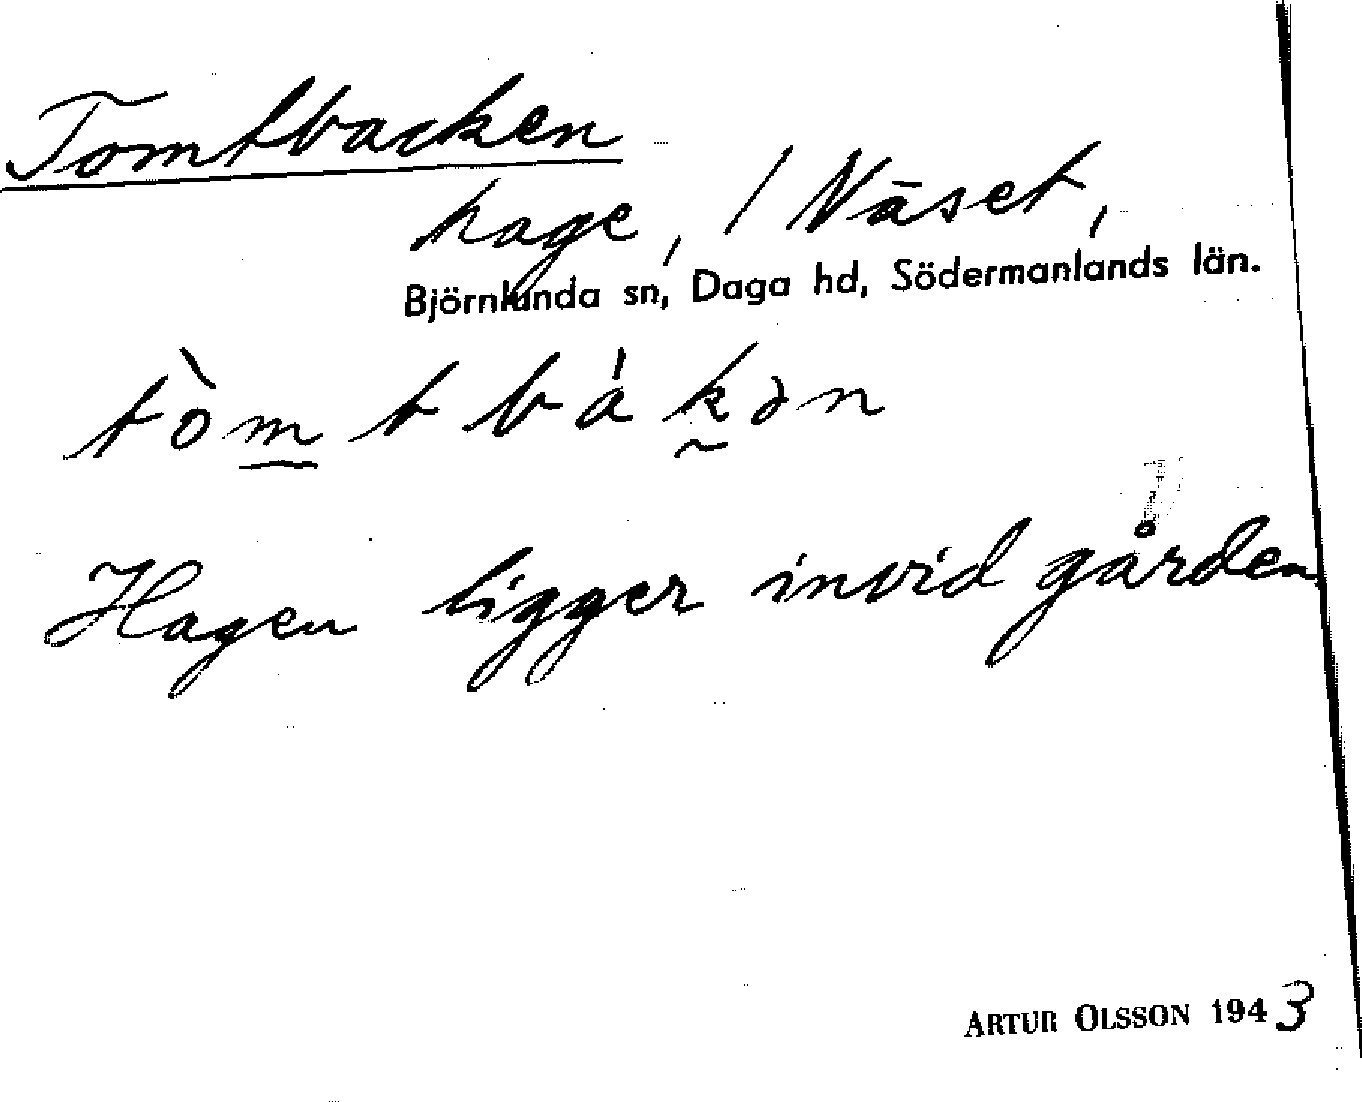 Tomtbacken
hage, / Näset,
Björnlunda sn, Daga hd, Södermanlands län.
tòm̲t bákən
Hagen ligger invid gården
ARTUR OLSSON 1943